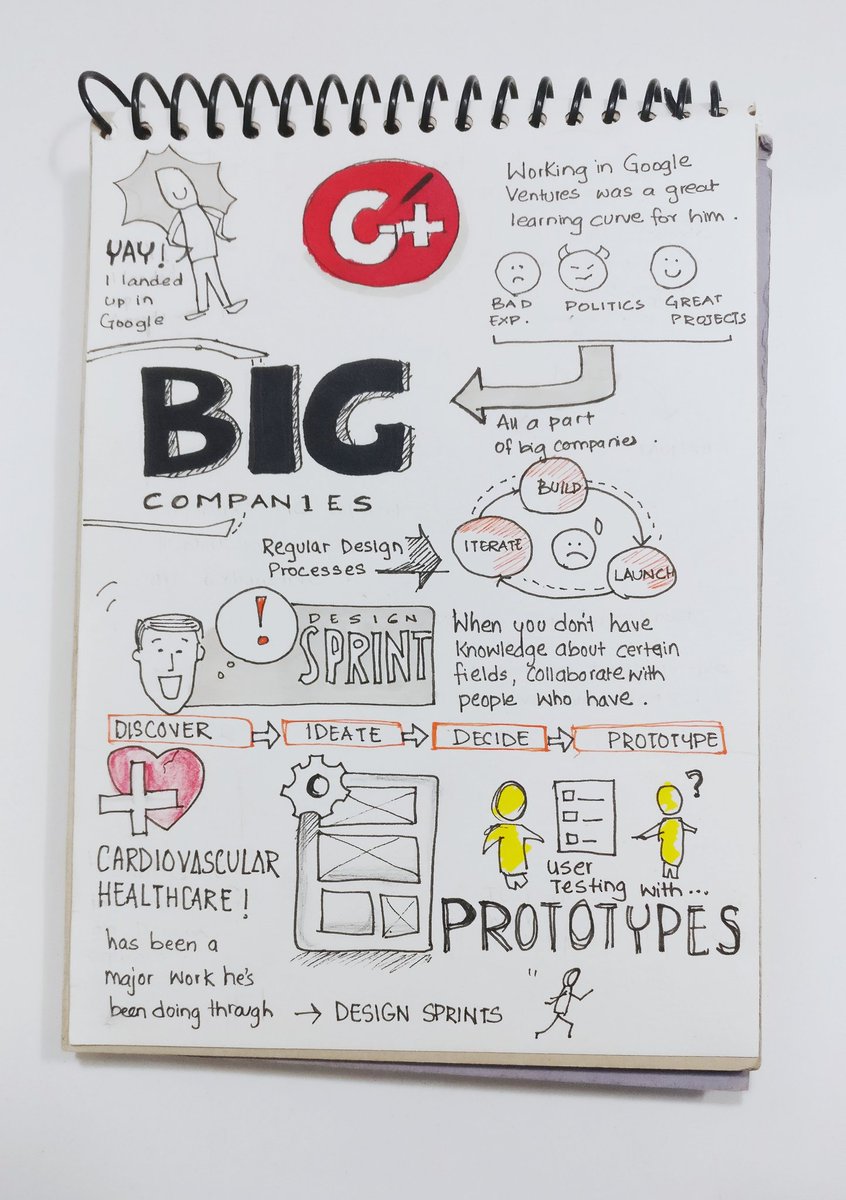 YAY!
I landed
up in
Google
G+
Working in Google
Ventures was a great
learning curve for him.
BAD
EXP.
POLITICS
GREAT
PROJECTS
BIG
COMPANIES
All a part
of big companies.
Regular Design
Processes
BUILD
ITERATE
LAUNCH
!
DESIGN
SPRINT
When you don't have
knowledge about certain
fields, collaborate with
people who have.
DISCOVER
IDEATE
DECIDE
PROTOTYPE
CARDIOVASCULAR
HEALTHCARE!
has been a
major work he's
been doing through → DESIGN SPRINTS
?
user
Testing with...
PROTOTYPES